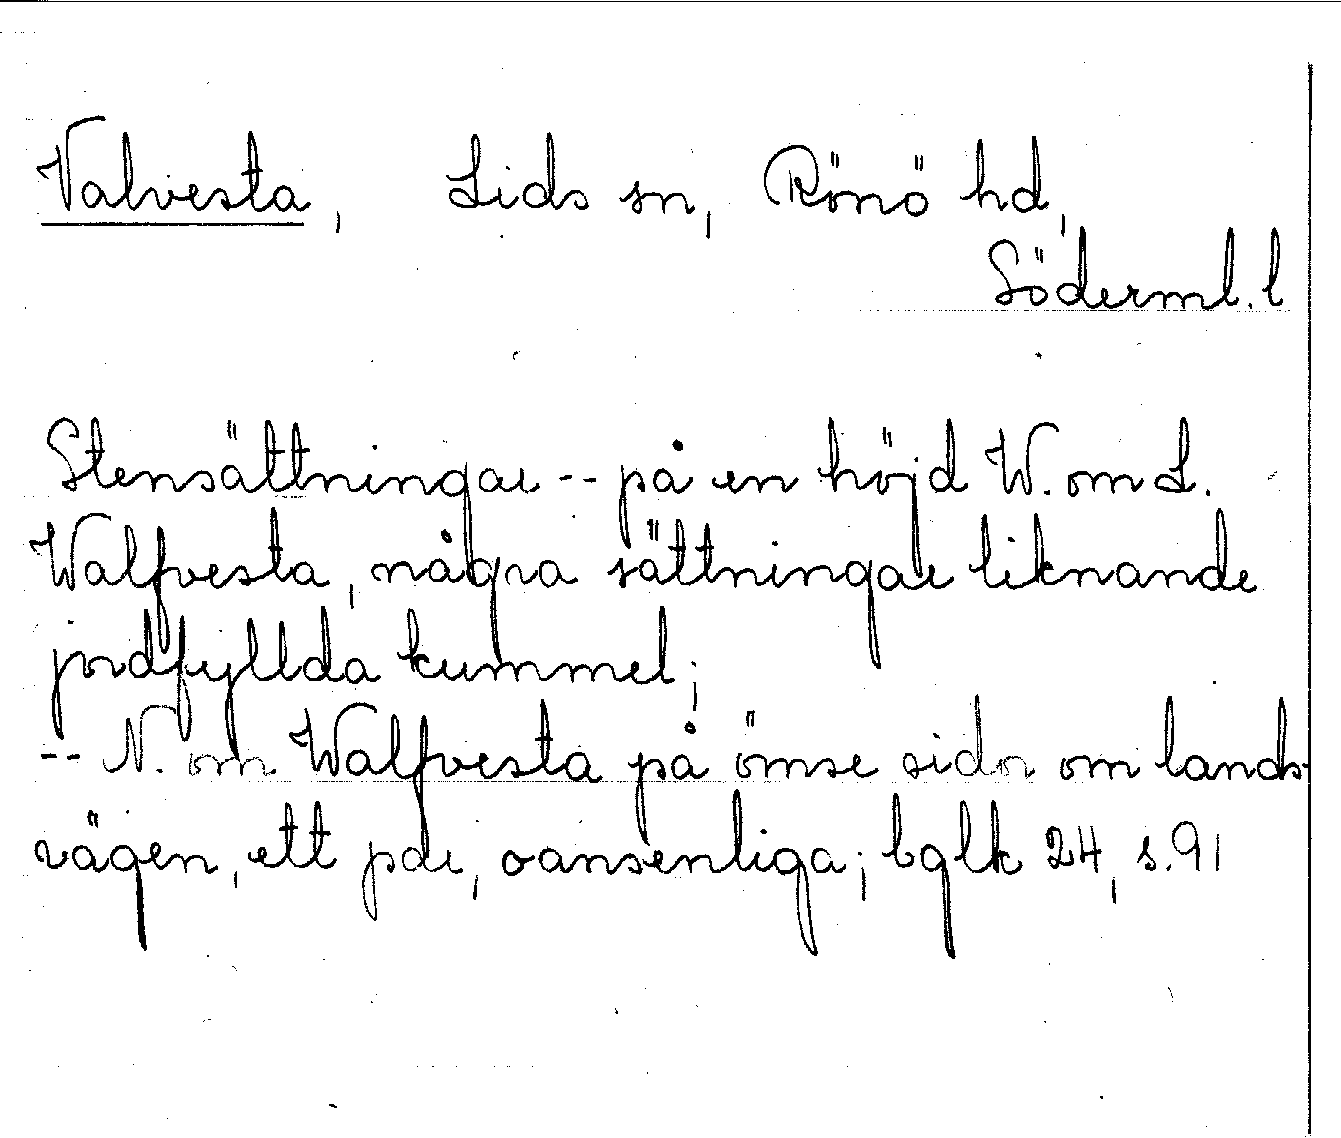 Valvesta, Lids sn, Rönö hd,
Söderml. l
Stensättningar -- på en höjd W. om L.
Walfvesta, några sättningar liknande
jordfyllda kummel;
-- N. om Walfvesta på ömse sidor om lands-
vägen, ett par, oansenliga; bglk 24, s. 91